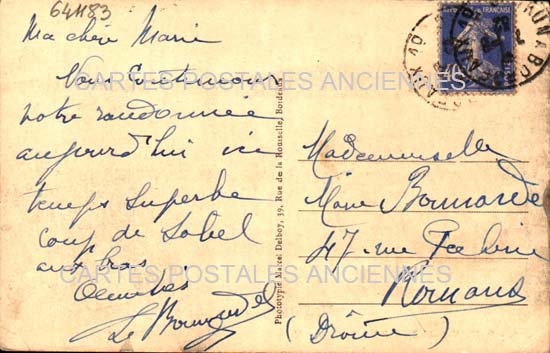 64483
Ma chère Marie
Nous continuons
notre randonnée
aujourd'hui ici
temps superbe
coup de soleil
aux bras
Le
Phototypie Marcel Delboy, 39, Rue de la Rousselle, Bordeaux
RÉPUBLIQUE FRANÇAISE
Mademoiselle
Marie
47 rue
Romans
(Drôme)
CARTES POSTALES ANCIENNES
CARTES POSTALES ANCIENNES